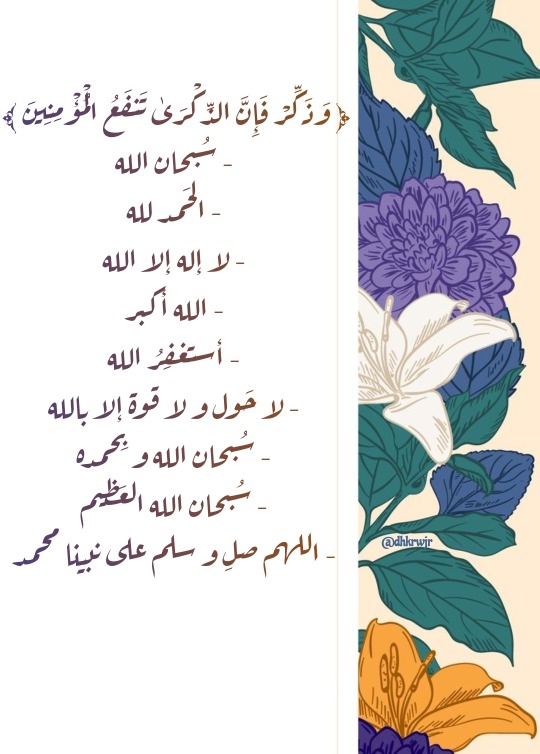 ﴿ وَذَكِّرْ فَإِنَّ الذِّكْرَىٰ تَنفَعُ الْمُؤْمِنِينَ ﴾
- سُبحان الله
- الحَمد لله
- لا إله إلا الله
- الله أكبر
- أستغفِرُ الله
- لا حَول و لا قوة إلا بالله
- سُبحان الله و بِحمده
- سُبحان الله العَظيم
- اللهم صلِ و سلم على نبينا محمد
@dhkrwjr